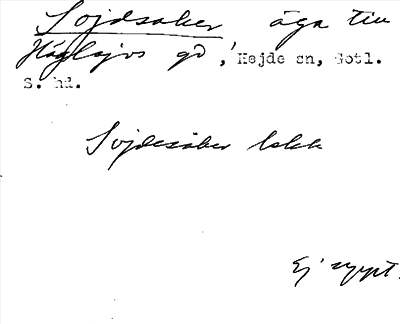 Sojdsaker äga till
Hägsjvs gd, Hejde sn, Gotl.
S. hd.
Sojdesåker bskk
Ej uppt.